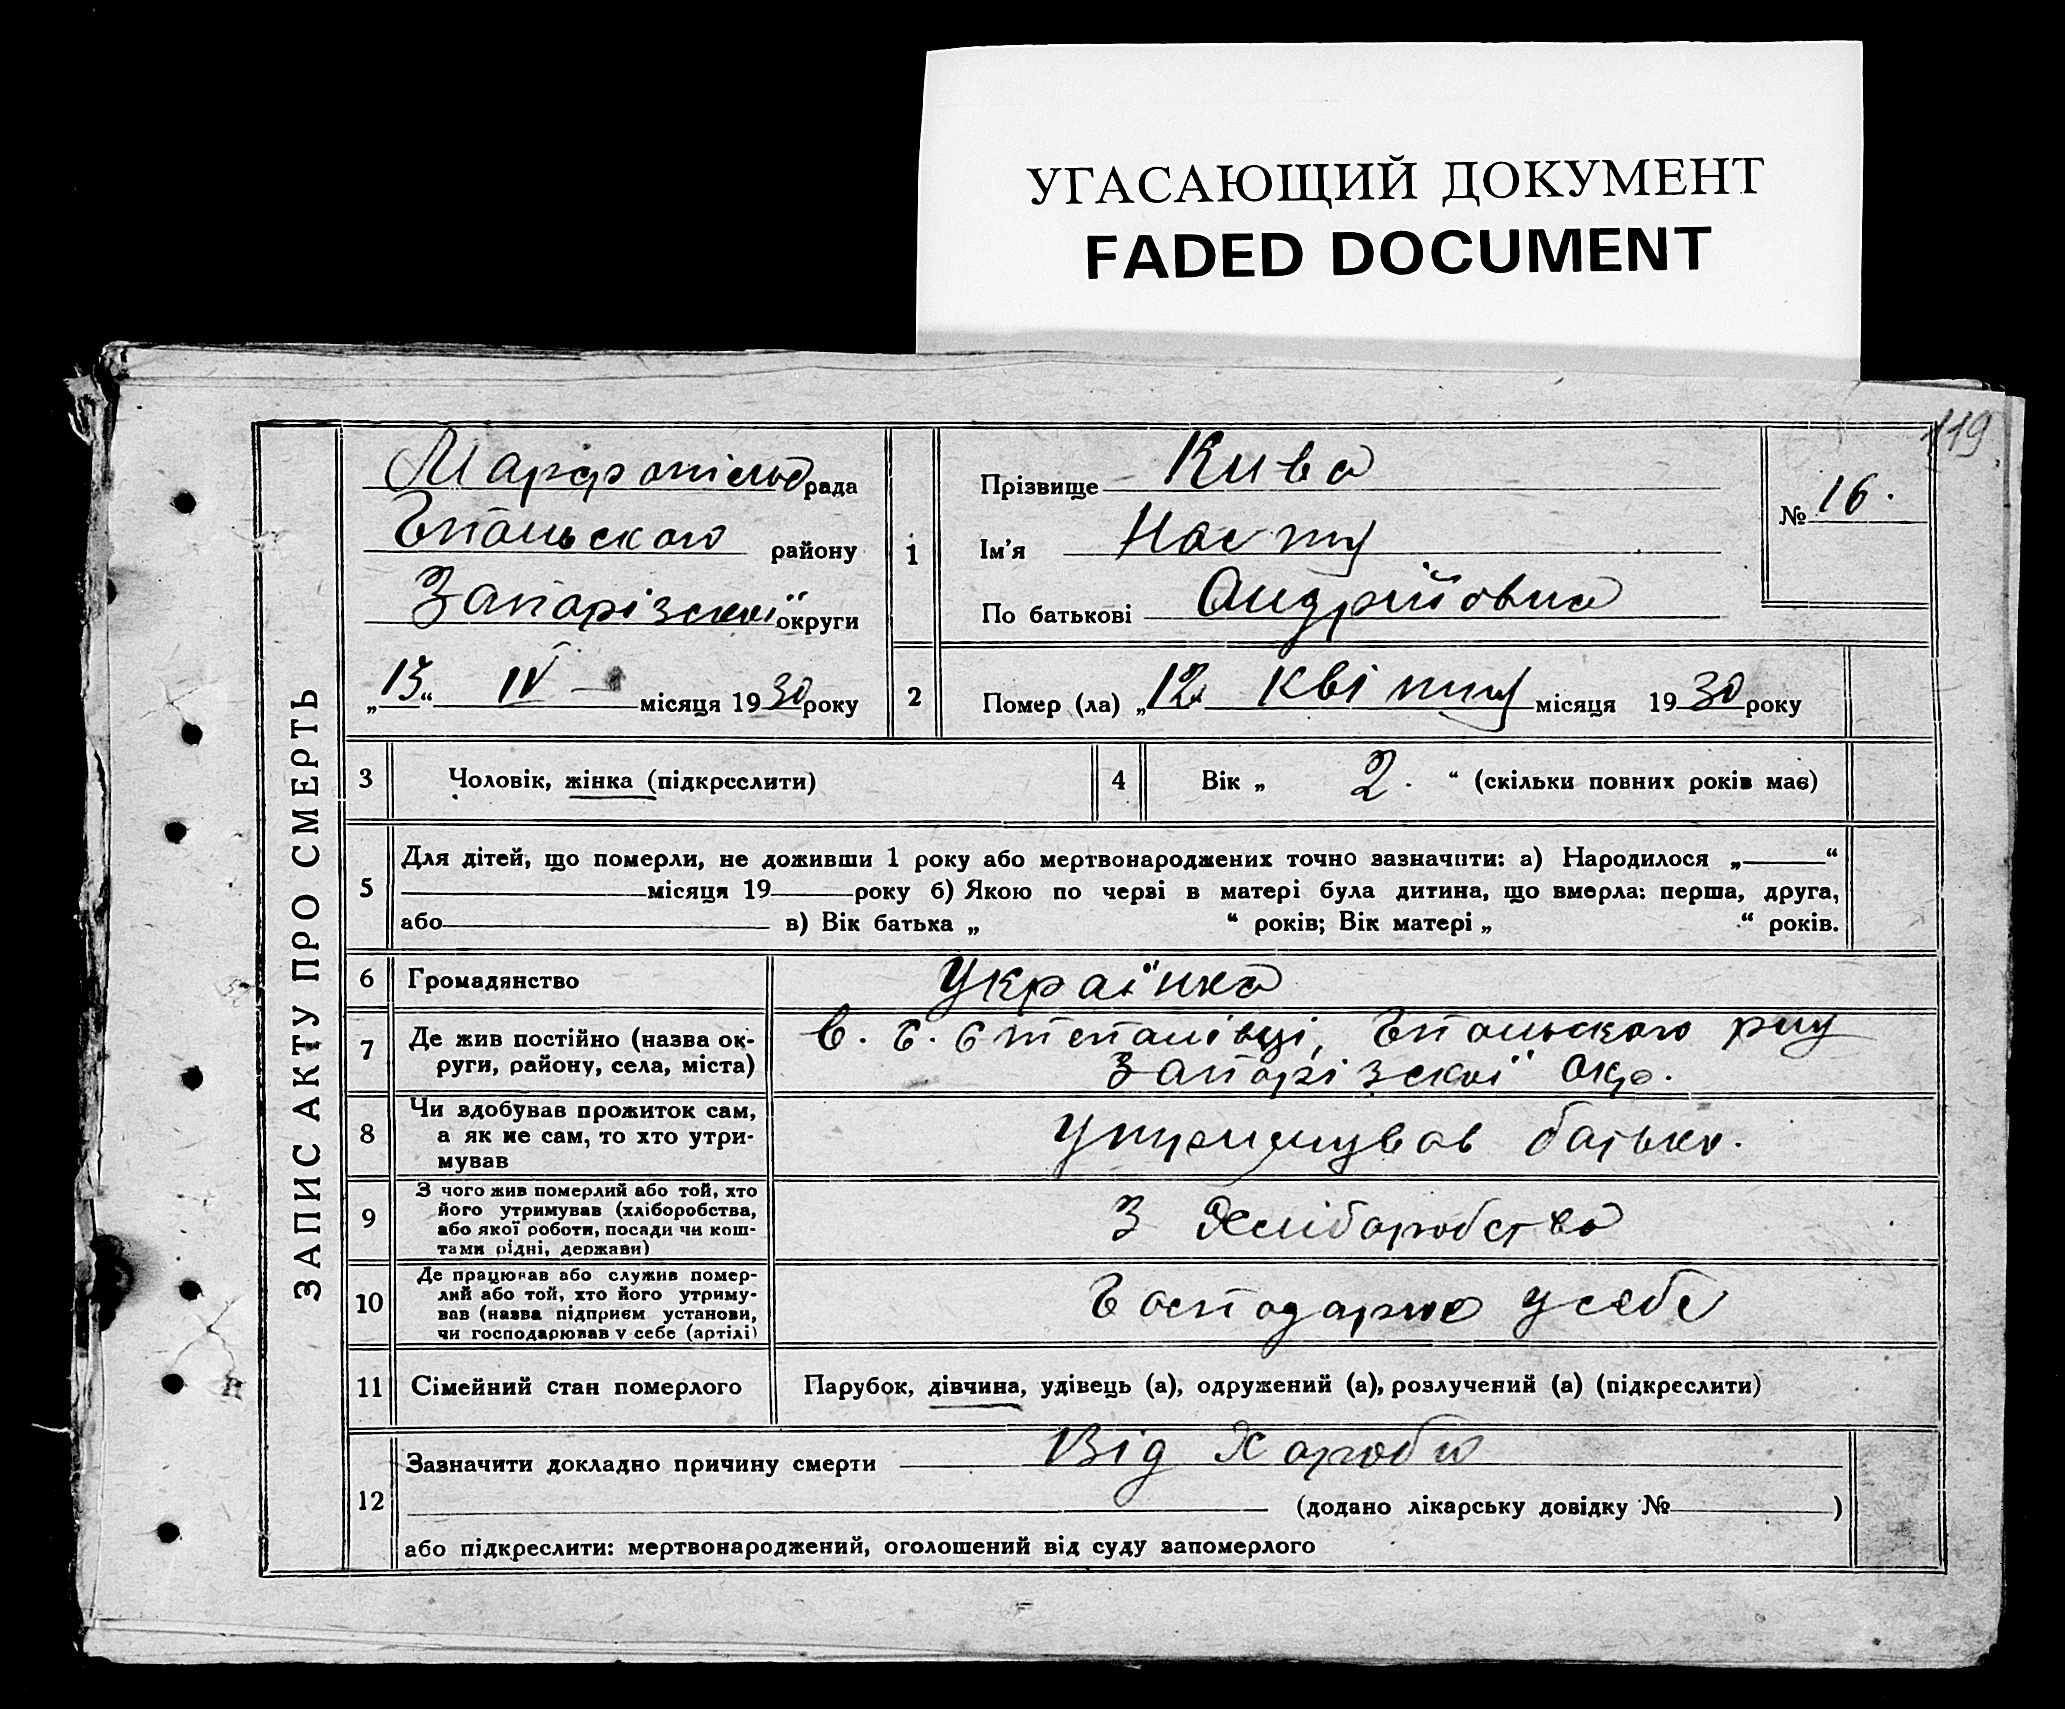 УГАСАЮЩИЙ ДОКУМЕНТ
FADED DOCUMENT
119
ЗАПИС АКТУ ПРО СМЕРТЬ
рада
району
Запорізської округи
„13“ IV місяця 1930 року
1
Прізвище Кива
Ім'я Настя
По батькові Андрійовна
№ 16.
2
Помер (ла) „12 квітня місяця 1930 року
3
Чоловік, жінка (підкреслити)
4
Вік „ 2. “ (скільки повних років має)
5
Для дітей, що померли, не доживши 1 року або мертвонароджених точно зазначити: а) Народилося „ “
місяця 19 року б) Якою по черзі в матері була дитина, що вмерла: перша, друга,
або в) Вік батька „ “ років; Вік матері „ “ років.
6
Громадянство
Українка
7
Де жив постійно (назва ок-
руги, району, села, міста)
Степанівці, рну
Запорізської окр.
8
Чи здобував прожиток сам,
а як не сам, то хто утри-
мував
Утримував батько.
9
З чого жив померлий або той, хто
його утримував (хліборобства,
або якої роботи, посади чи кош-
тами рідні, держави)
З хліборобства
10
Де працював або служив помер-
лий або той, хто його утриму-
вав (назва підприєм установи,
чи господарював у себе (артілі)
Господарює у себе
11
Сімейний стан померлого
Парубок, дівчина, удівець (а), одружений (а), розлучений (а) (підкреслити)
12
Зазначити докладно причину смерти Від хороби
(додано лікарську довідку № )
або підкреслити: мертвонароджений, оголошений від суду запомерлого